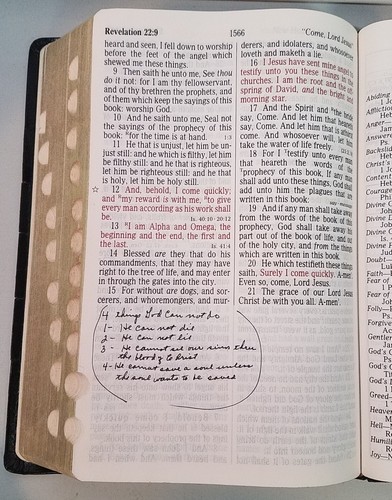 Revelation 22:9
1566
"Come, Lord Jesus"
heard and seen, I fell down to worship
before the feet of the angel which
shewed me these things.
9 Then saith he unto me, See thou
do it not: for I am thy fellowservant,
and of thy brethren the prophets, and
of them which keep the sayings of this
book: worship God.
10 And he saith unto me, Seal not
the sayings of the prophecy of this
book: for the time is at hand. 1:3
11 He that is unjust, let him be un-
just still: and he which is filthy, let him
be filthy still: and he that is righteous,
let him be righteous still: and he that
is holy, let him be holy still.
☆ 12 And, behold, I come quickly;
and my reward is with me, to give
every man according as his work shall
be. Is. 40:10
13 I am Alpha and Omega, the
beginning and the end, the first and
the last. Is. 41:4
14 Blessed are they that do his
commandments, that they may have
right to the tree of life, and may enter
in through the gates into the city.
15 For without are dogs, and sor-
cerers, and whoremongers, and mur-
4 things God can not do
1- He can not die
2- He can not lie
3- He cannot see our sins thru
the blood of Christ
4- He cannot save a soul unless
the soul wants to be saved
derers, and idolaters, and whosoever
loveth and maketh a lie.
16 I Jesus have sent mine angel to
testify unto you these things in the
churches. I am the root and the off-
spring of David, and the bright and
morning star.
17 And the Spirit and the bride
say, Come. And let him that heareth
say, Come. And let him that is athirst
come. And whosoever will, let him
take the water of life freely.
18 For I testify unto every man
that heareth the words of the
prophecy of this book, If any man
shall add unto these things, God shall
add unto him the plagues that are
written in this book:
19 And if any man shall take away
from the words of the book of this
prophecy, God shall take away his
part out of the book of life, and out
of the holy city, and from the things
which are written in this book.
20 He which testifieth these things
saith, Surely I come quickly. A-men'.
Even so, come, Lord Jesus.
21 The grace of our Lord Jesus
Christ be with you all. A-men'.
Abiding
Affliction
Heb
Anger—
Answere
Backslid
Christ's
Content
Heb
Courage
Phi
Divine
Divine
Jo
Divine
Ju
Doubt—
Luk
Faith—
Fear of
Fear of
Folly—
P
Forgive
A
Gentle
God's
God's
God's
Greed—
Heaven
Hell—
Humil
Joy—